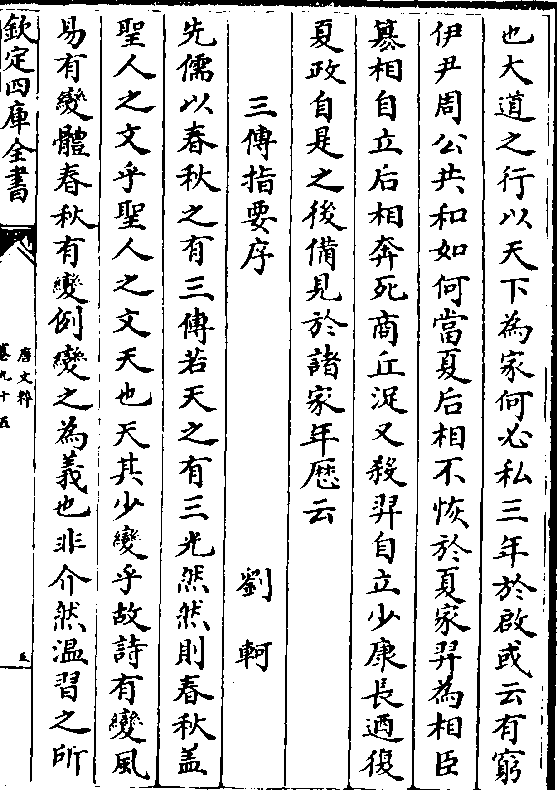 也大道之行以天下為家何必私三年於啟或云有窮
伊尹周公共和如何當夏后相不恢於夏家羿為相臣
簒相自立后相奔死商丘浞又殺羿自立少康長迺復
夏政自是之後備見於諸家年歴云
三傳指要序
劉軻
先儒以春秋之有三傳若天之有三光然然則春秋盖
聖人之文乎聖人之文天也天其少變乎故詩有變風
易有變體春秋有變例變之為義也非介然温習之所
欽定四庫全書
唐文粹
卷九十五
五